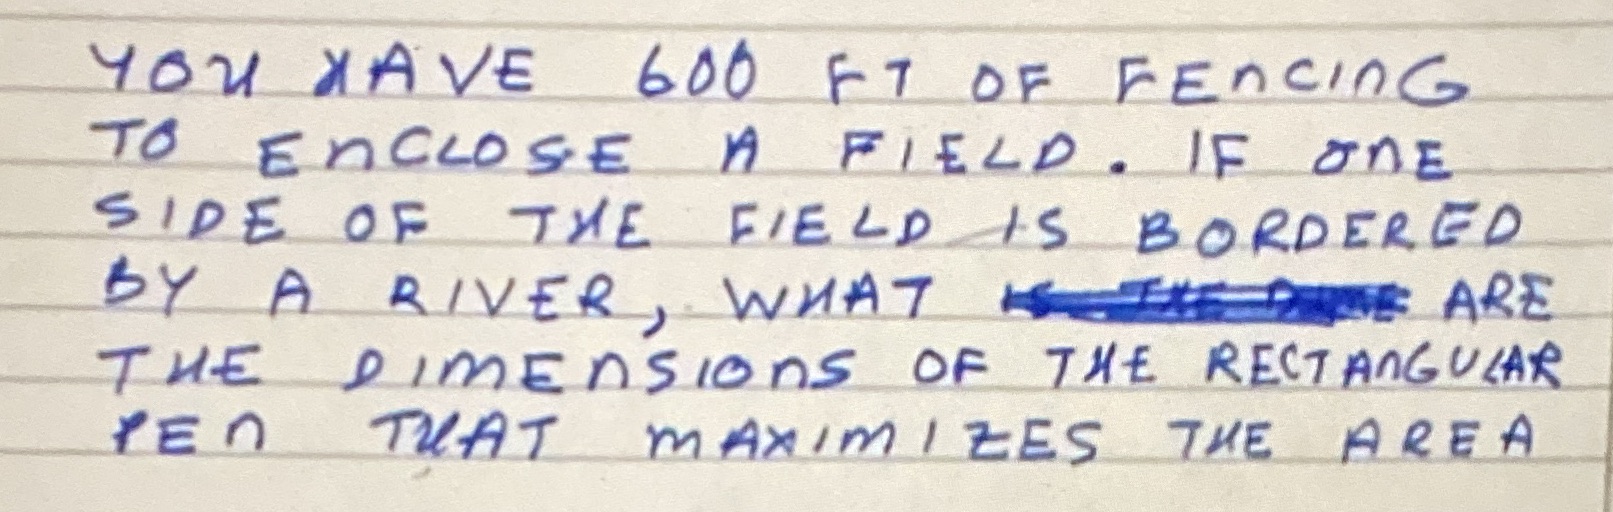 YOU HAVE 600 FT OF FENCING
TO ENCLOSE A FIELD. IF ONE
SIDE OF THE FIELD IS BORDERED
BY A RIVER, WHAT ARE
THE DIMENSIONS OF THE RECTANGULAR
PEN THAT MAXIMIZES THE AREA